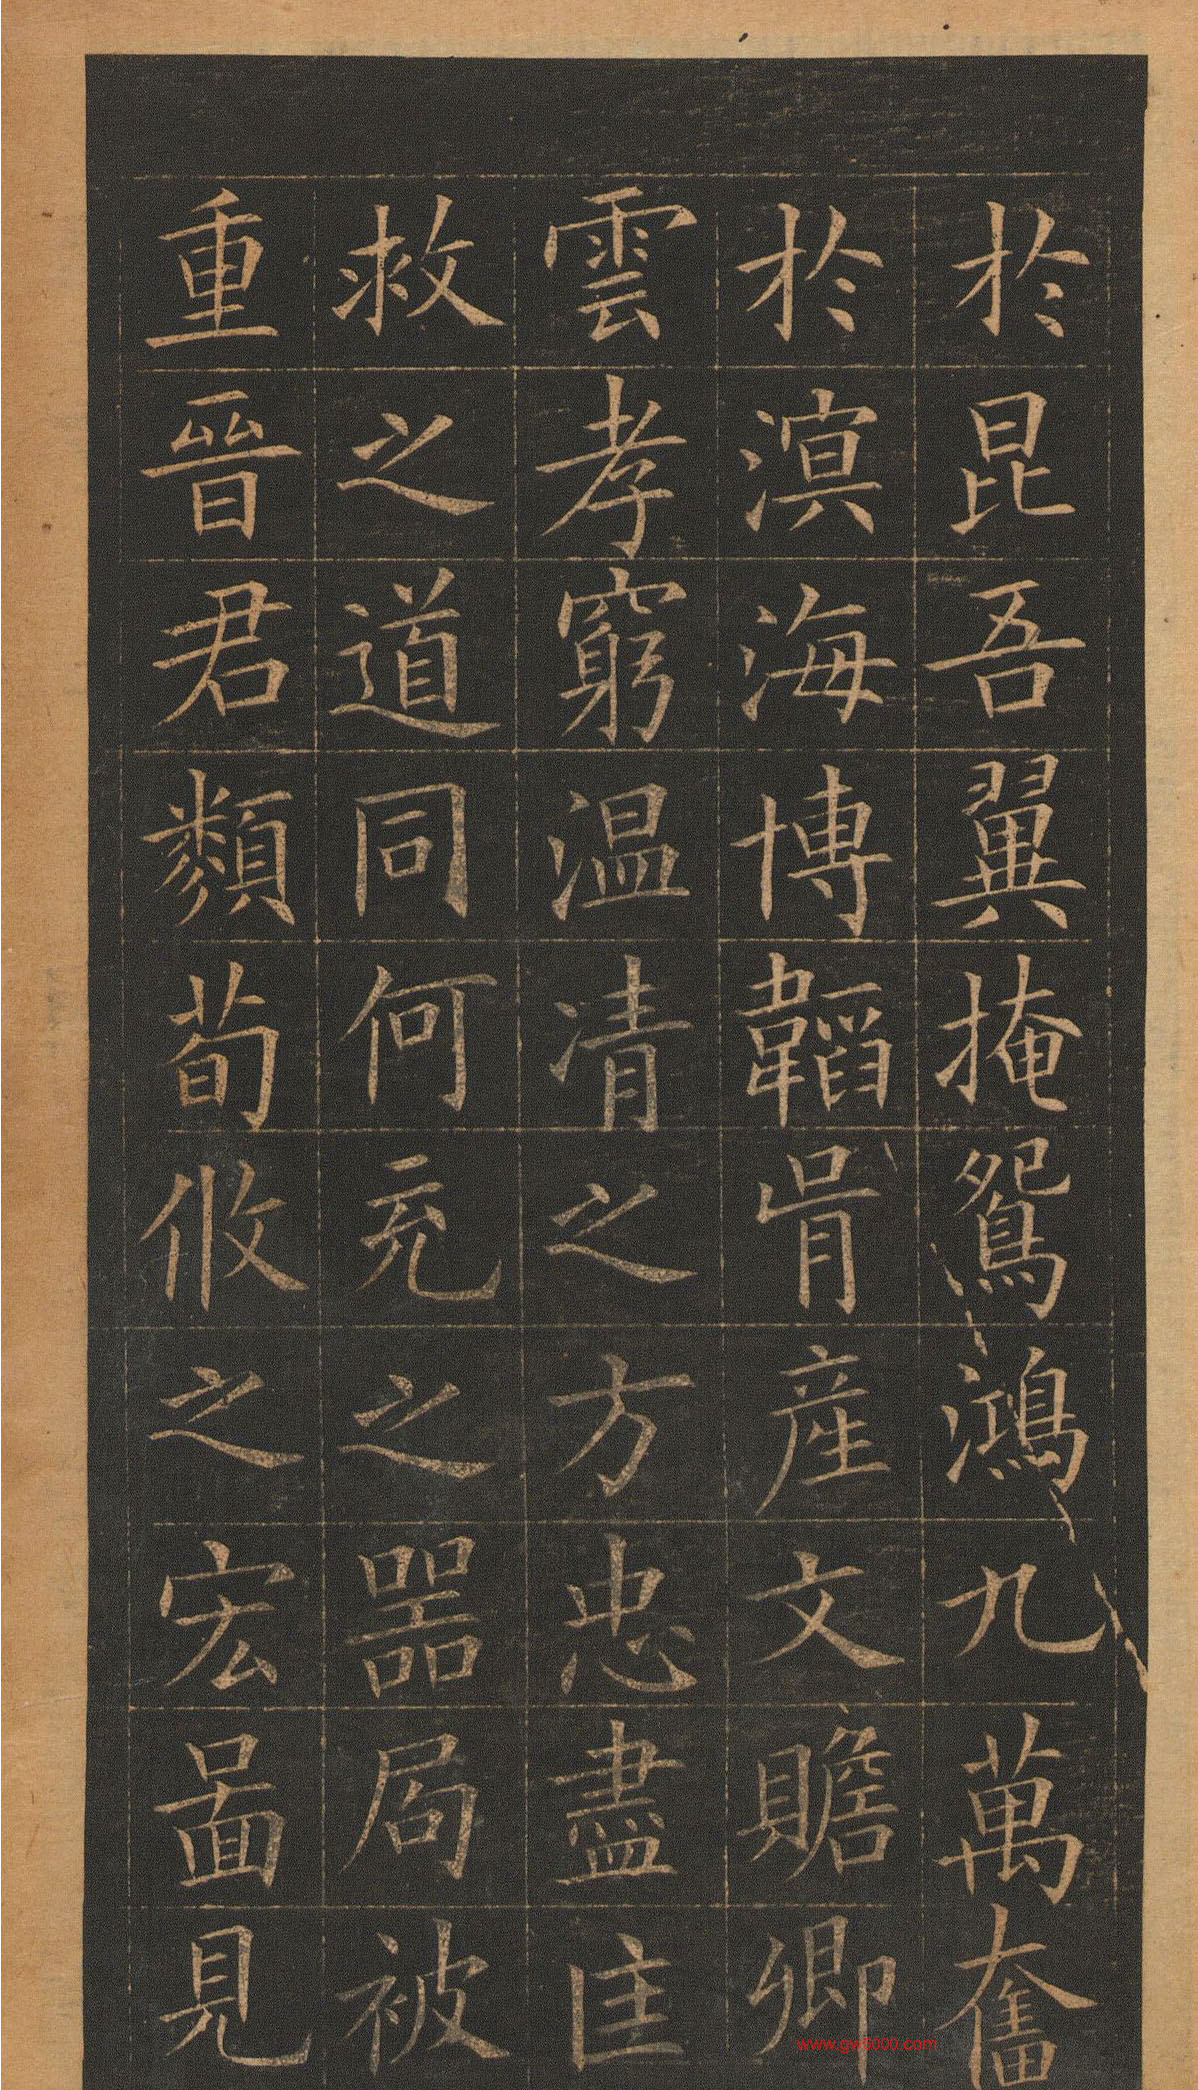 於昆吾翼掩鴛鴻九萬奮
於溟海博韜胄産文贍卿
雲孝窮温凊之方忠盡匡
救之道同何充之器局被
重晉君類荀攸之宏圖見
www.gw5000.com